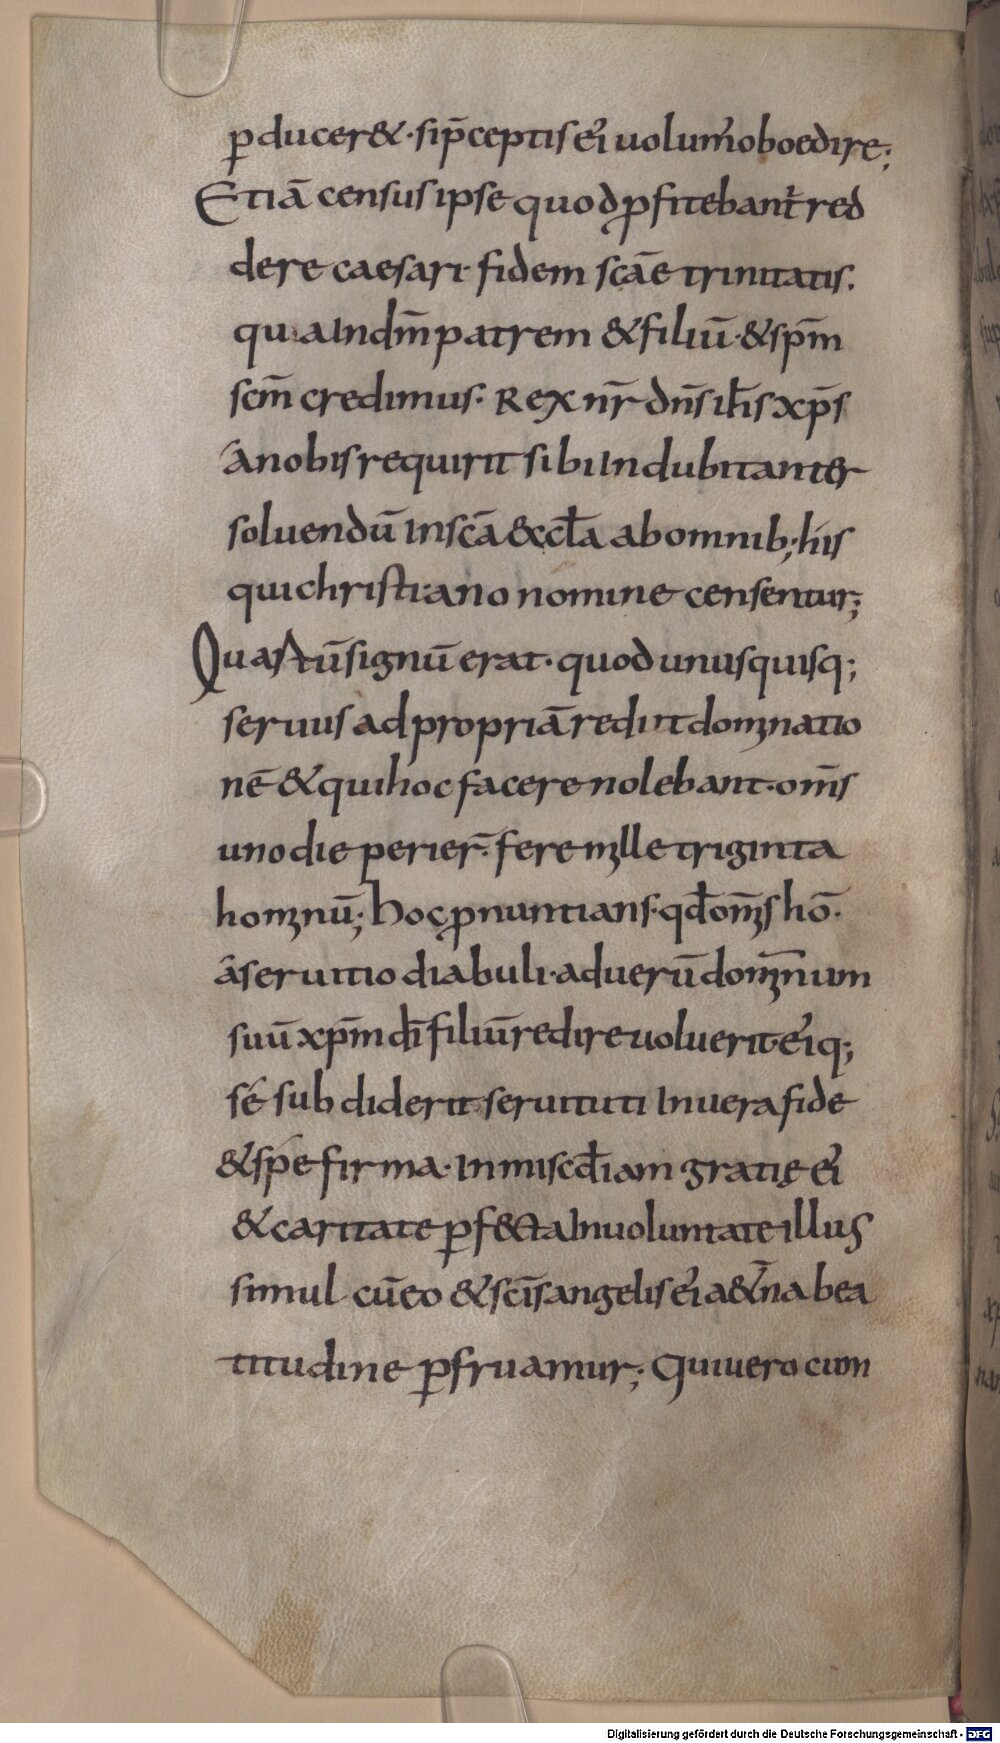 ꝑducer&·sip̄ceptis ei uolum̓ oboedire;
Etiā census ipse quod ꝓfitebant̄ red
dere caesari· fidem scāe trinitatis.
quia In dm̄ patrem & filiū·& sp̄m
scm̄ credimus· Rex nr̄ dn̄s ih̄s xp̄s
á nobis requirit sibi Indubitanter
soluendū In scā &ccl̄a ab omnib; his
qui christiano nomine censentur;
Qua stū signū erat· quod unusquisq;
seruus ad propriā rediit dominatio
nē & qui hoc facere nolebant· om̄s
uno die perier̄· fere mille triginta
hominū; Hoc ꝓnuntians· qd̄ om̄s hō·
á seruitio diabuli· ad uerū dominum
suū xp̄m dī filiū redire uoluerit· eiq;
sé subdiderit seruituti In uera fide
& spé firma· In miscd̄iam gratię ei
& caritate ꝑf&cta In uoluntate illius
simul cū eo & sc̄is angelis ei a&̄na bea
titudine ꝑfruamur; Qui uero cum
Digitalisierung gefördert durch die Deutsche Forschungsgemeinschaft - DFG